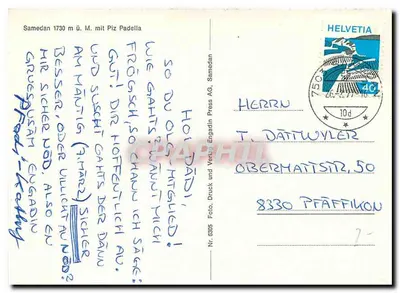 Samedan 1730 m ü. M. mit Piz Padella
HOI, DÄDI,
SO DU OLDS MITGLIED!
WIE GAHTS? WÄNNT MICH
FRÖGSCH, SO CHANN ICH SÄGE:
GUT! DIR HOFFENTLICH AU.
UND SUSCHT GAHTS DER DÄNN
AM MÄNTIG (3. MÄRZ) SICHER
BESSER, ODER VILLICHT AU NÖD?
MIR SICHER NÖD, ALSO EN
GRUESUSÄM ENGADIN
Nr. 6305 Foto, Druck und Verlag Engadin Press AG, Samedan
HELVETIA
40
750
10d
HERRN
T. DÄTTWYLER
OBERMATTSTR. 50
8330 PFÄFFIKON
2.-